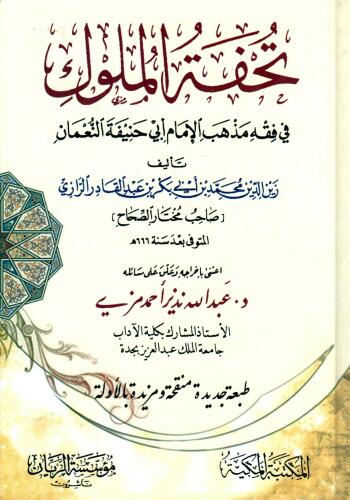 تحفة الملوك
في فقه مذهب الإمام أبي حنيفة النعمان
تأليف
زين الدين محمد بن أبي بكر بن عبد القادر الرازي
[صاحب مختار الصحاح]
المتوفى بعد سنة ٦٦٦ هـ
اعتنى بإخراجه وعلق على مسائله
د. عبد الله نذير أحمد مزي
الأستاذ المشارك بكلية الآداب
جامعة الملك عبد العزيز بجدة
طبعة جديدة منقحة ومزيدة بالأدلة
المكتبة المكية
مؤسسة الريان
ناشرون